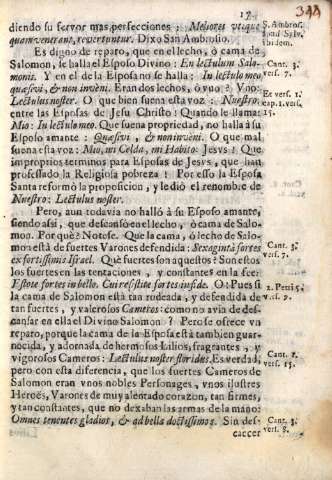 17. 344
diendo su fervor mas perfecciones: Meliores utique
quam venerant, revertuntur. Dixo San Ambrosio.
Es digno de reparo, que en el lecho, ò cama de
Salomon, se halla el Esposo Divino: En lectulum Salo-
monis. Y en el de la Esposa no se halla: In lectulo meo
quæsivi, & non inveni. Eran dos lechos, ò vno? Vno:
Lectulus noster. O que bien suena esta voz: Nuestro:
entre las Esposas de Jesu Christo! Quando le llama:
Mio: In lectulo meo. Que suena propriedad, no halla à su
Esposo amante: Quæsivi, & non inveni. O que mal
suena esta voz: Mio, mi Celda, mi Habito: Jesvs! Que
improprios terminos para Esposas de Jesvs, que han
professado la Religiosa pobreza! Por esso la Esposa
Santa reformò la proposicion, y le diò el renombre de
Nuestro: Lectulus noster.
Pero, aun todavia no hallò à su Esposo amante,
siendo assi, que descansò en el lecho, ò cama de Salo-
mon. Por què? Notese. Que la cama, ò lecho de Salo-
mon està de fuertes Varones defendida: Sexaginta fortes
ex fortissimis Israel. Què fuertes son aquestos? Son estos
los fuertes en las tentaciones, y constantes en la fee:
Estote fortes in bello. Cui resistite fortes in fide. O: Pues si
la cama de Salomon està tan rodeada, y defendida de
tan fuertes, y valerosos Cameros: como no avia de des-
cansar en ella el Divino Salomon? Pero se ofrece vn
reparo, porque la cama de la Esposa està tambien guar-
necida, y adornada de hermosos Lilios, fragrantes, y
vigorosos Cameros: Lectulus noster floridus. Es verdad,
pero con esta diferencia, que los fuertes Cameros de
Salomon eran vnos nobles Personages, vnos ilustres
Heroës, Varones de muy alentado corazon, tan firmes,
y tan constantes, que no dexaban las armas de la mano:
Omnes tenentes gladios, & ad bella doctissimos. Sin des-
caecer
S. Ambros.
ibidem.
Cant. 3.
vers. 7.
Ex vers. 1.
cap. 1. vers.
15.
Cant. 3.
vers. 7.
1. Petri 5.
vers. 9.
Cant. 1.
vers. 15.
Cant. 3.
vers. 8.